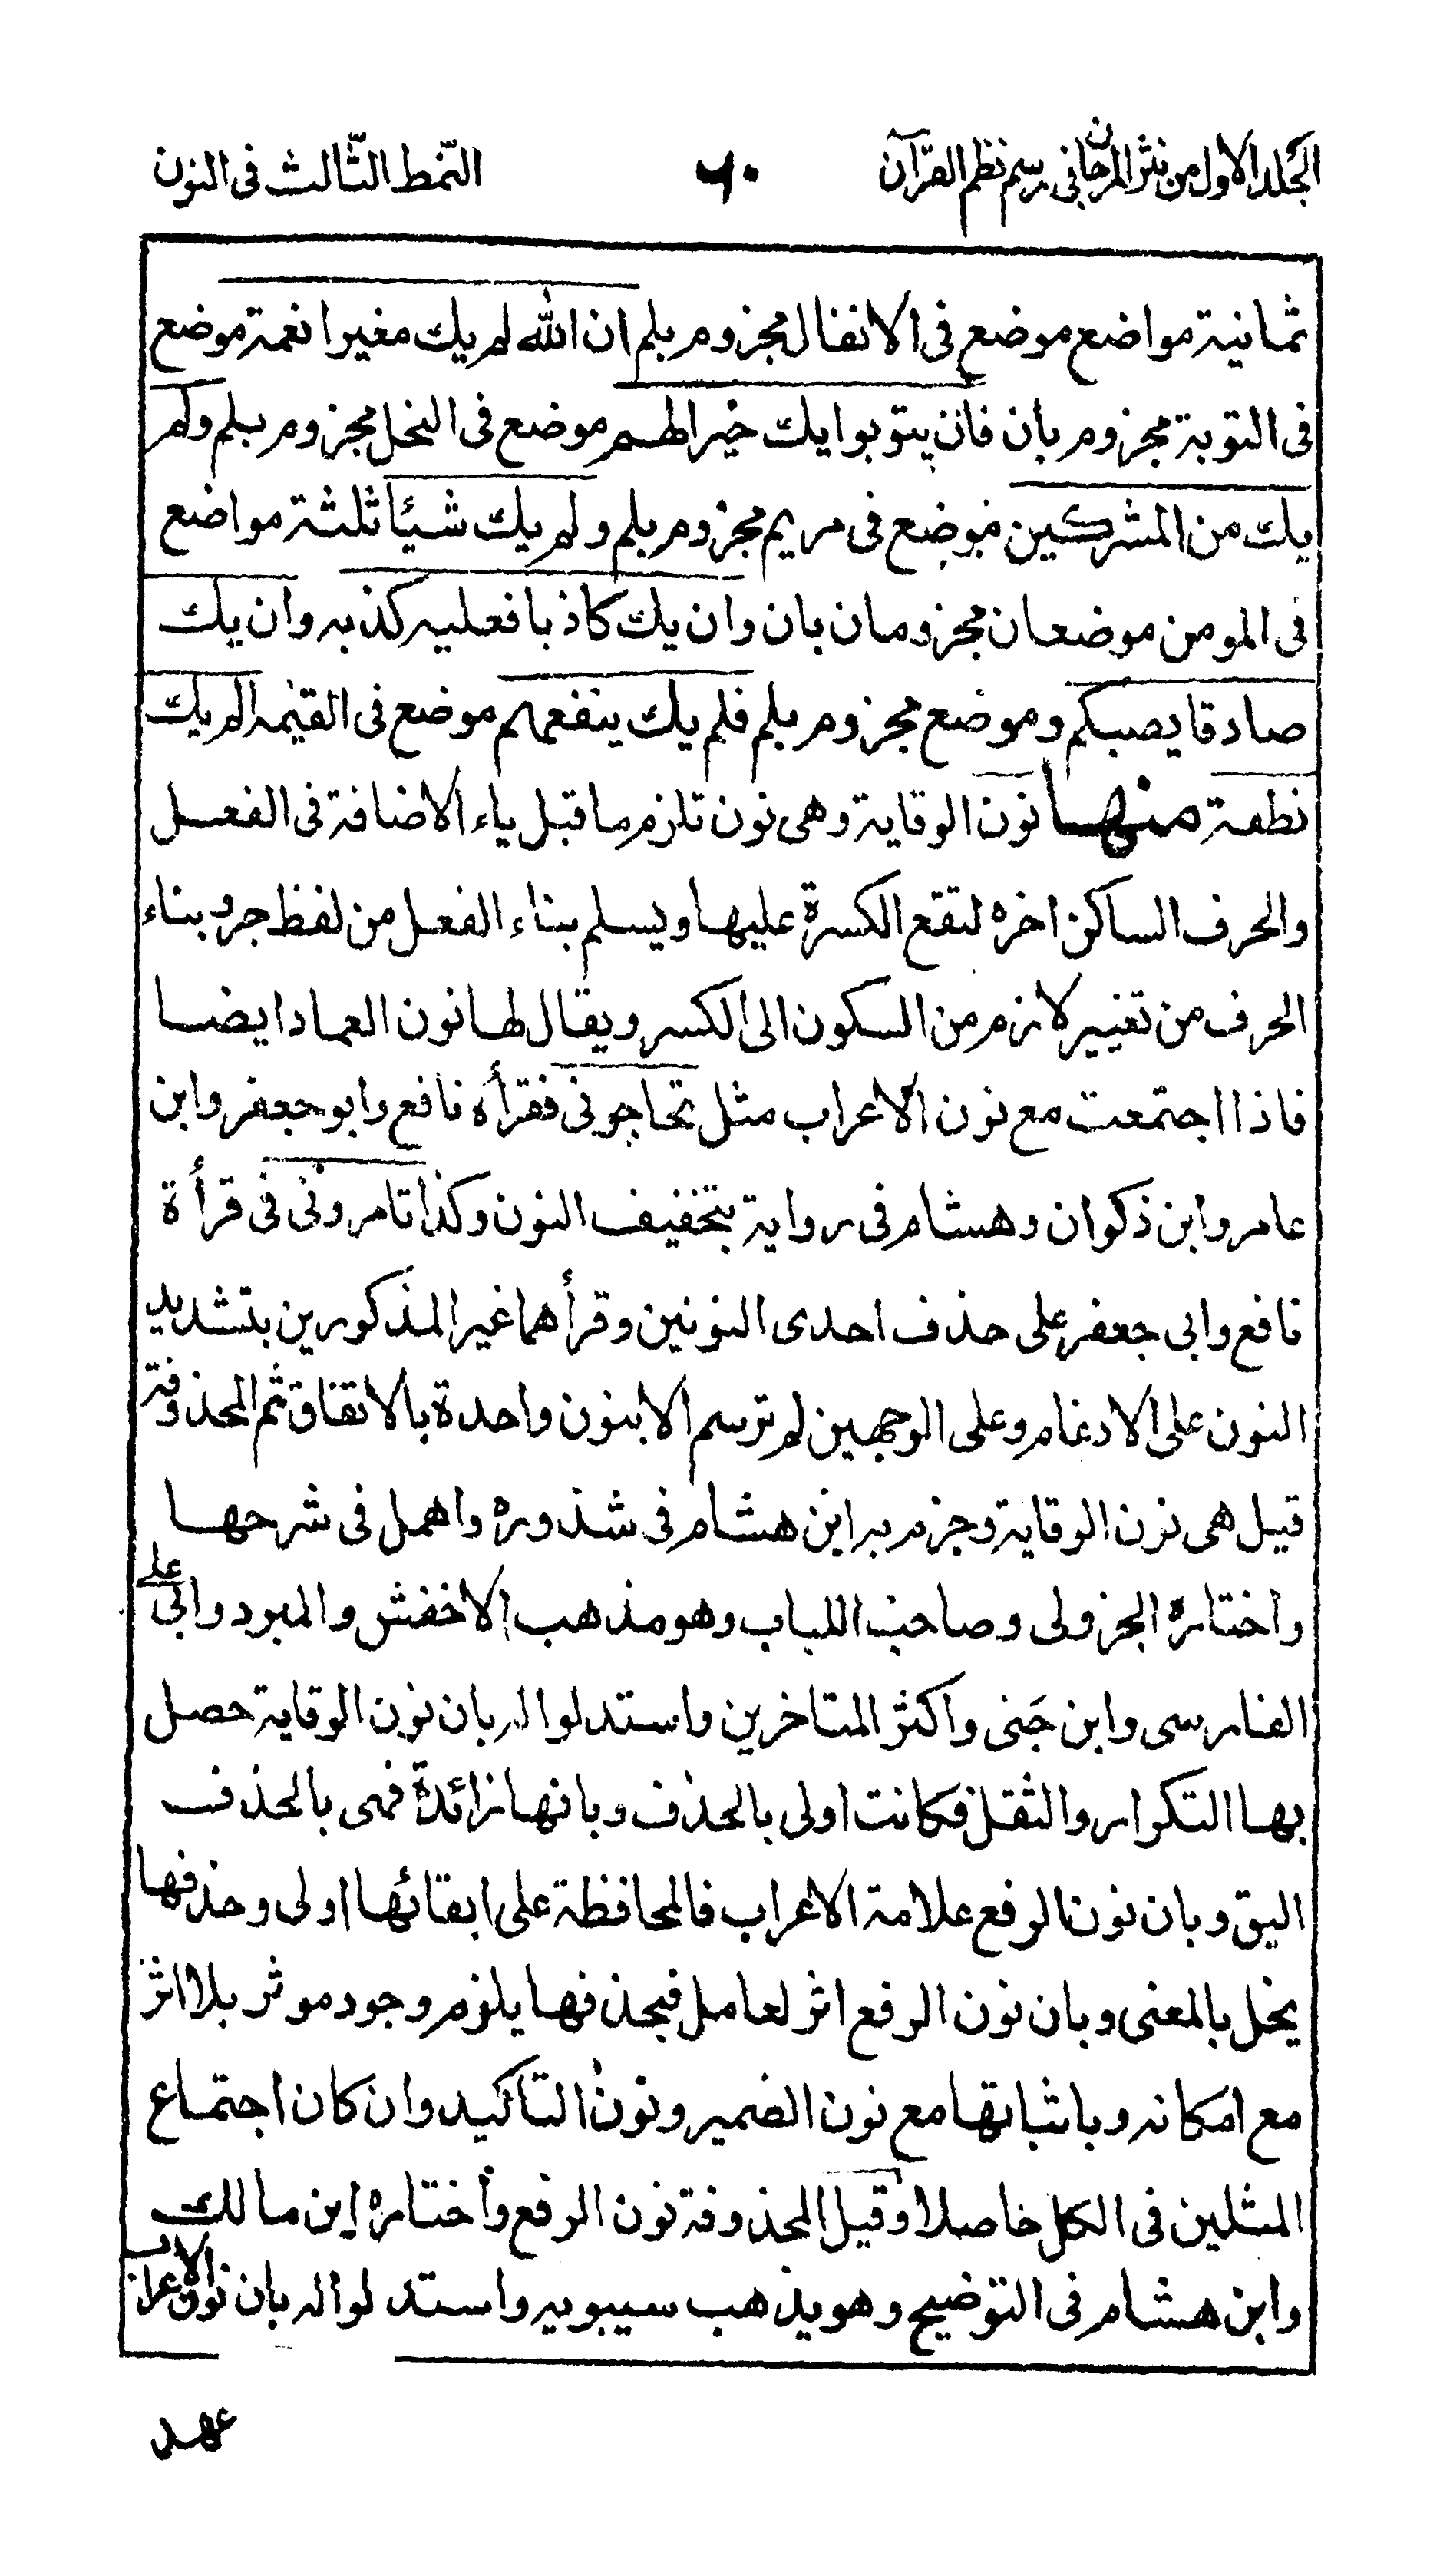 الجلد الاول من نثر المرجان فى رسم نظم القرآن ٦٠ النّمط الثّالث فى النون
ثمانية مواضع موضع فى الانفال مجزوم بلم ان الله لم يك مغيرا نعمة موضع
فى التوبة مجزوم بان فان يتوبوا يك خيرا لهم موضع فى النحل مجزوم بلم ولم
يك من المشركين موضع فى مريم مجزوم بلم ولم يك شيئا ثلثة مواضع
فى المومن موضعان مجزومان بان وان يك كاذبا فعليه كذبه وان يك
صادقا يصبكم وموضع مجزوم بلم فلم يك ينفعهم موضع فى القيٰمة الم يك
نطفة منها نون الوقاية وهى نون تلزم ما قبل ياء الاضافة فى الفعل
والحرف الساكن اخره لتقع الكسرة عليها ويسلم بناء الفعل من لفظ جر وبناء
الحرف من تغيير لازم من السكون الى الكسر ويقال لها نون العماد ايضا
فاذا اجتمعت مع نون الاعراب مثل تحاجونى فقرأه نافع وابو جعفر وابن
عامر وابن ذكوان وهشام فى رواية بتخفيف النون وكذا تامرونى فى قرأة
نافع وابى جعفر على حذف احدى النونين وقرأهما غير المذكورين بتشديد
النون على الادغام وعلى الوجهين لم ترسم الا بنون واحدة بالاتفاق ثم المحذوفة
قيل هى نون الوقاية وجزم به ابن هشام فى شذوره واهمل فى شرحها
واختاره الجزولى وصاحب اللباب وهو مذهب الاخفش والمبرد وابى على
الفارسى وابن جَنى واكثر المتاخرين واستدلوا له بان نون الوقاية حصل
بها التكرار والثقل فكانت اولى بالحذف وبانها زائدة فهى بالحذف
اليق وبان نون الرفع علامة الاعراب فالمحافظة على ابقائها اولى وحذفها
يخل بالمعنى وبان نون الرفع اثر لعامل فبحذفها يلزم وجود موثر بلا اثر
مع امكانه وباثباتها مع نون الضمير ونون التاكيد وان كان اجتماع
المثلين فى الكل حاصلا وقيل المحذوفة نون الرفع واختاره ابن مالك
وابن هشام فى التوضيح وهو مذهب سيبويه واستدلوا له بان نون الاعراب
عهد